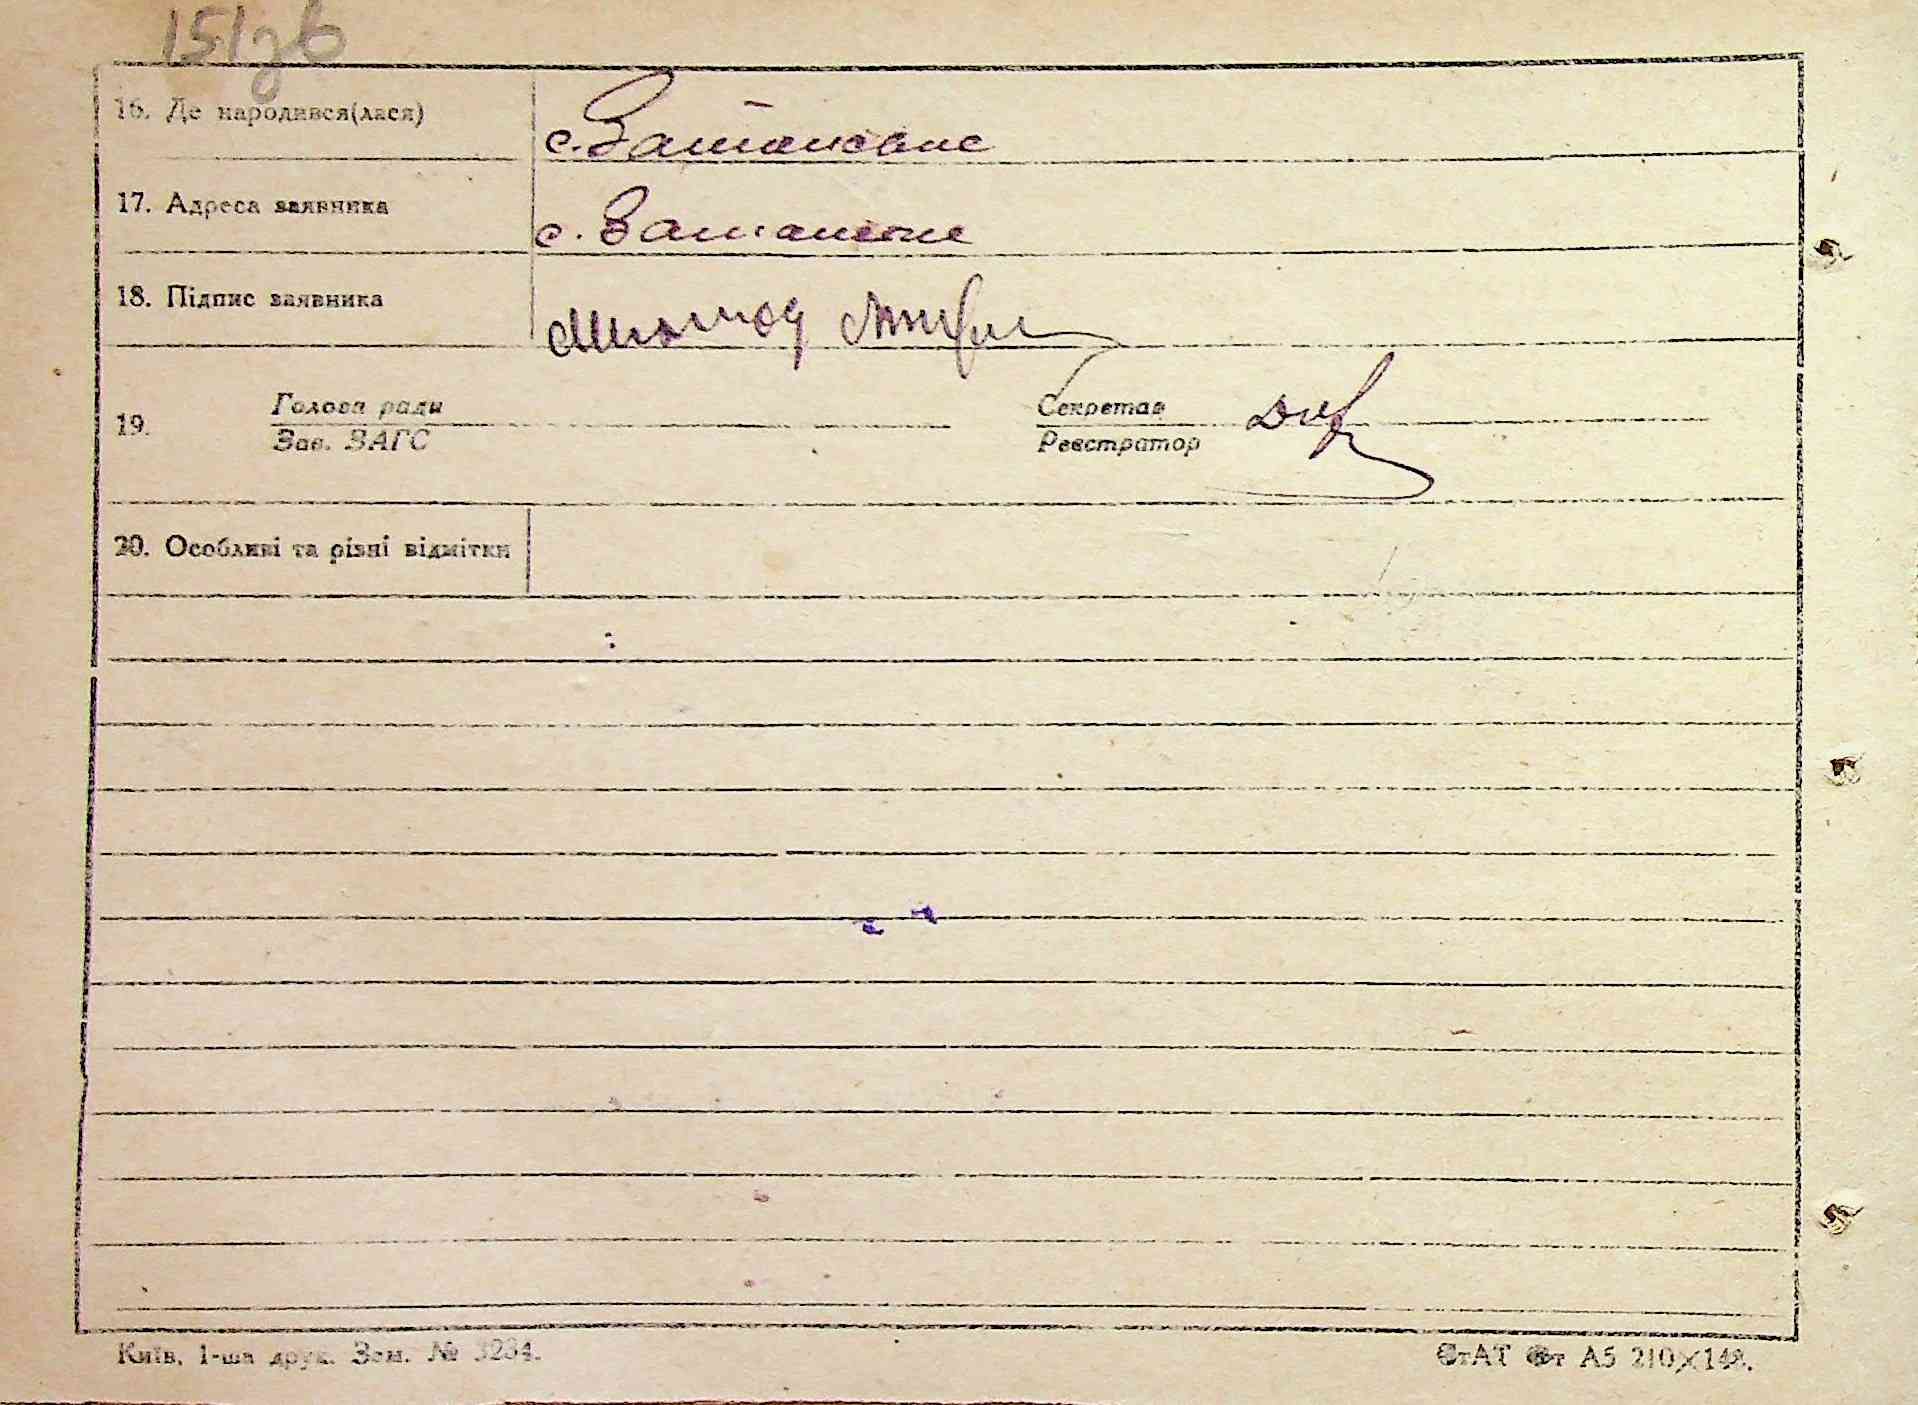 151зв
16. Де народився(лася)
с. Заташське
17. Адреса заявника
с. Заташське
18. Підпис заявника
19. Голова ради
Зав. ЗАГС
Секретар
Реєстратор
20. Особливі та різні відмітки
Київ, 1-ша друк. Зам. № 3234.
СтАТ Фт А5 210×148.